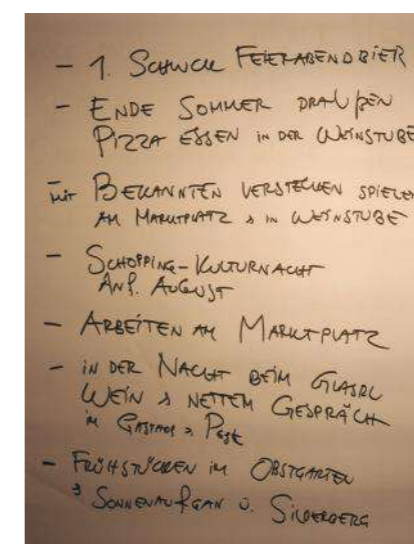 - 1. SCHNELL FEIERABENDBIER
- ENDE SOMMER DRAUßEN
PIZZA ESSEN IN DER WEINSTUBE
- MIT BEKANNTEN VERSTECKEN SPIELEN
AM MARKTPLATZ & IN WEINSTUBE
- SCHOPPING-KULTURNACHT
ANF. AUGUST
- ARBEITEN AM MARKTPLATZ
- IN DER NACHT BEIM GLASRL
WEIN & NETTEM GESPRÄCH
IM GASTHOF z. POST
- FRÜHSTÜCKEN IM OBSTGARTEN
& SONNENAUFGAN Ü. SILBERBERG